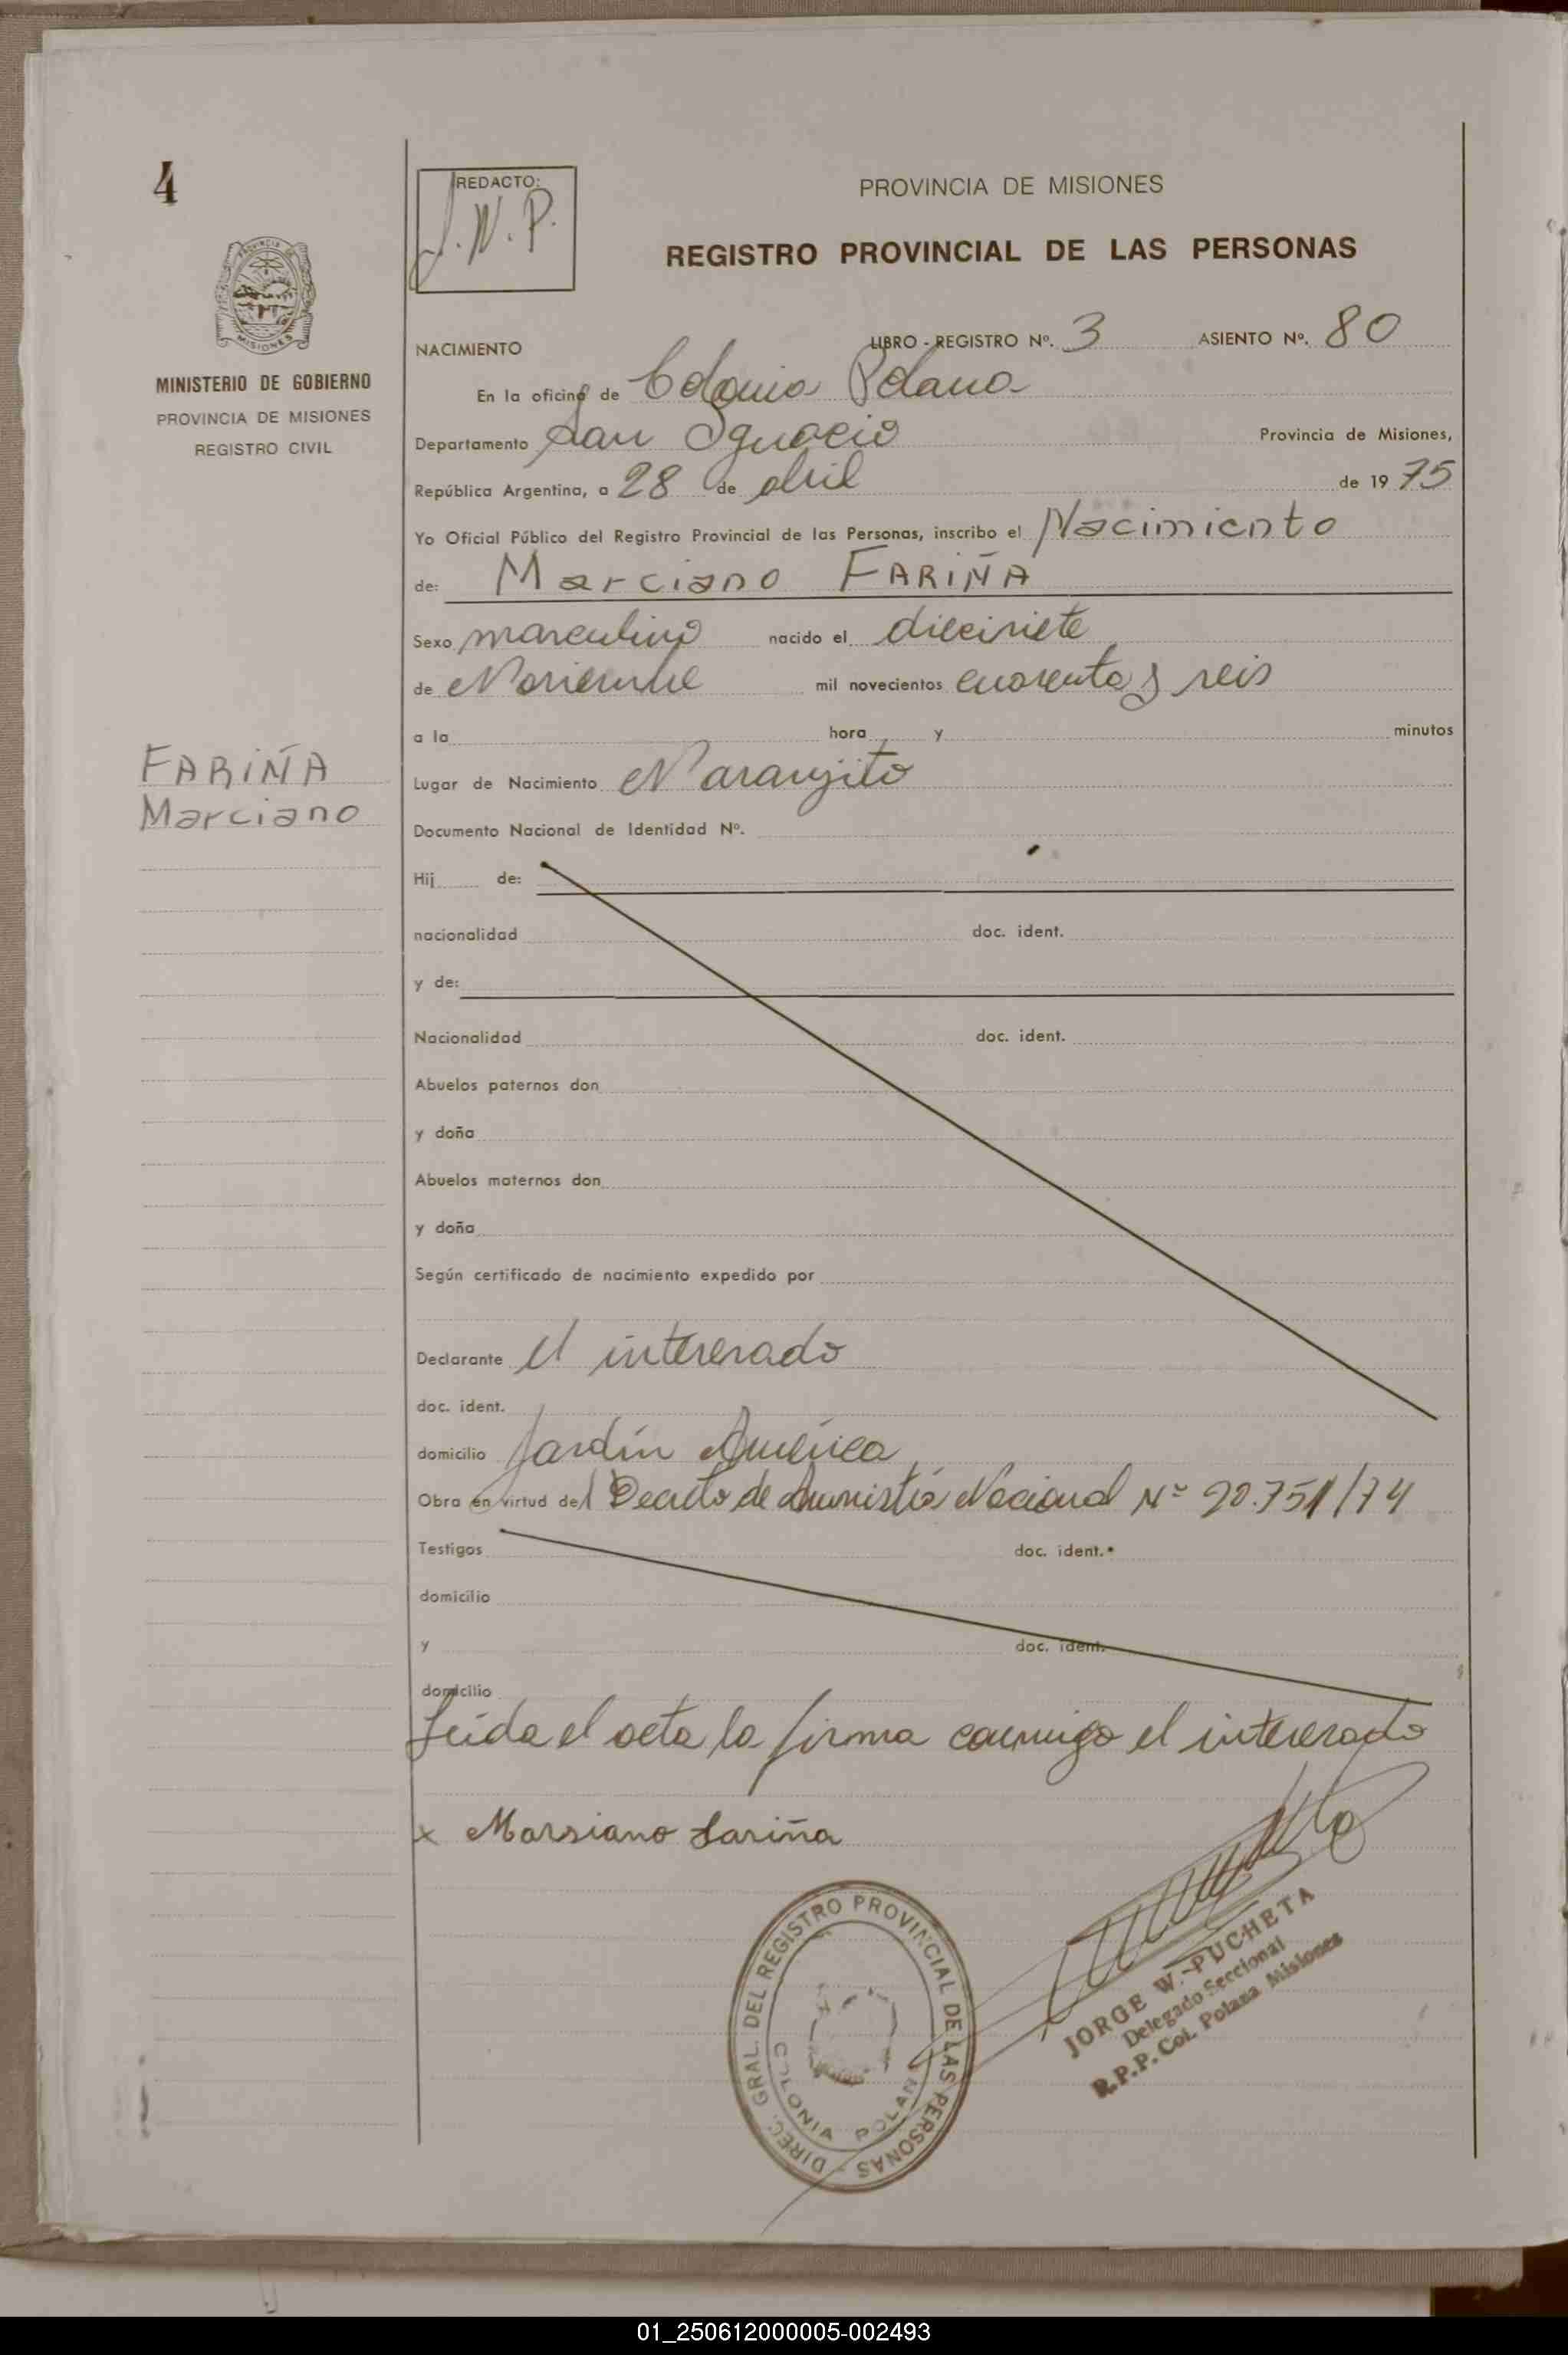 4
REDACTO:
J.W.P.
PROVINCIA DE MISIONES
REGISTRO PROVINCIAL DE LAS PERSONAS
PROVINCIA DE
MISIONES
MINISTERIO DE GOBIERNO
PROVINCIA DE MISIONES
REGISTRO CIVIL
NACIMIENTO LIBRO - REGISTRO Nº. 3 ASIENTO Nº. 80
En la oficina de Colonia Polana
Departamento San Ignacio Provincia de Misiones,
República Argentina, a 28 de abril de 1975
Yo Oficial Público del Registro Provincial de las Personas, inscribo el Nacimiento
de: Marciano FARIÑA
Sexo masculino nacido el diecisiete
de Noviembre mil novecientos cuarenta y seis
a la hora y minutos
FARIÑA
Marciano
Lugar de Nacimiento Naranjito
Documento Nacional de Identidad Nº.
Hij de:
nacionalidad doc. ident.
y de:
Nacionalidad doc. ident.
Abuelos paternos don
y doña
Abuelos maternos don
y doña
Según certificado de nacimiento expedido por
Declarante el interesado
doc. ident.
domicilio Jardín América
Obra en virtud del Decreto de Amnistía Nacional Nº 20.751/74
Testigos doc. ident.
domicilio
y doc. ident.
domicilio
Leída el acta la firma conmigo el interesado
x Marsiano Fariña
DIREC. GRAL. DEL REGISTRO PROVINCIAL DE LAS PERSONAS -
COLONIA POLANA
JORGE W. PUCHETA
Delegado Seccional
R.P.P. Col. Polana Misiones
01_250612000005-002493